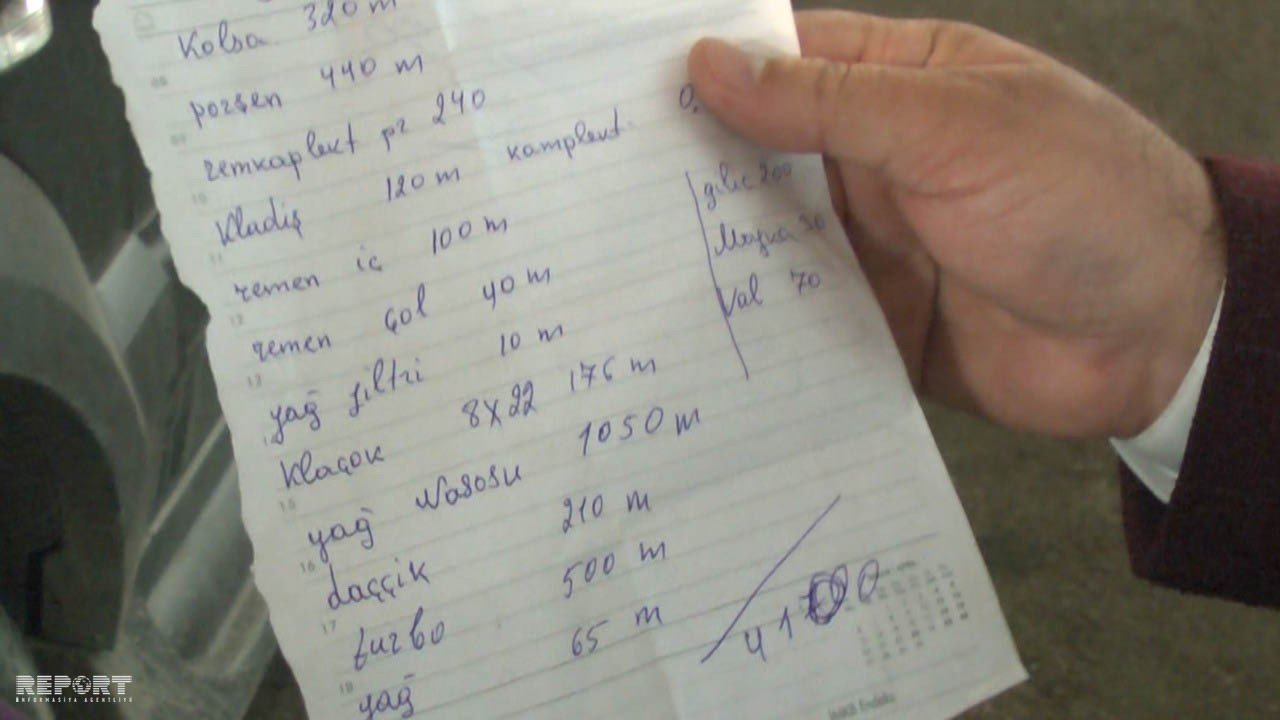 Kolsa 320 m
porşen 440 m
remkaplekt pr 240
Kladiş 120 m kamplevt 0.
remen iç 100 m
remen çol 40 m
yağ filtri 10 m
Klaçok 8x22 176 m
yağ Nasosu 1050 m
daççik 210 m
turbo 500 m
yağ 65 m
gilic 200
Mazka 30
Val 70
41
08
09
10
11
12
13
15
16
17
18
REPORT
İNFORMASİYA AGENTLİYİ